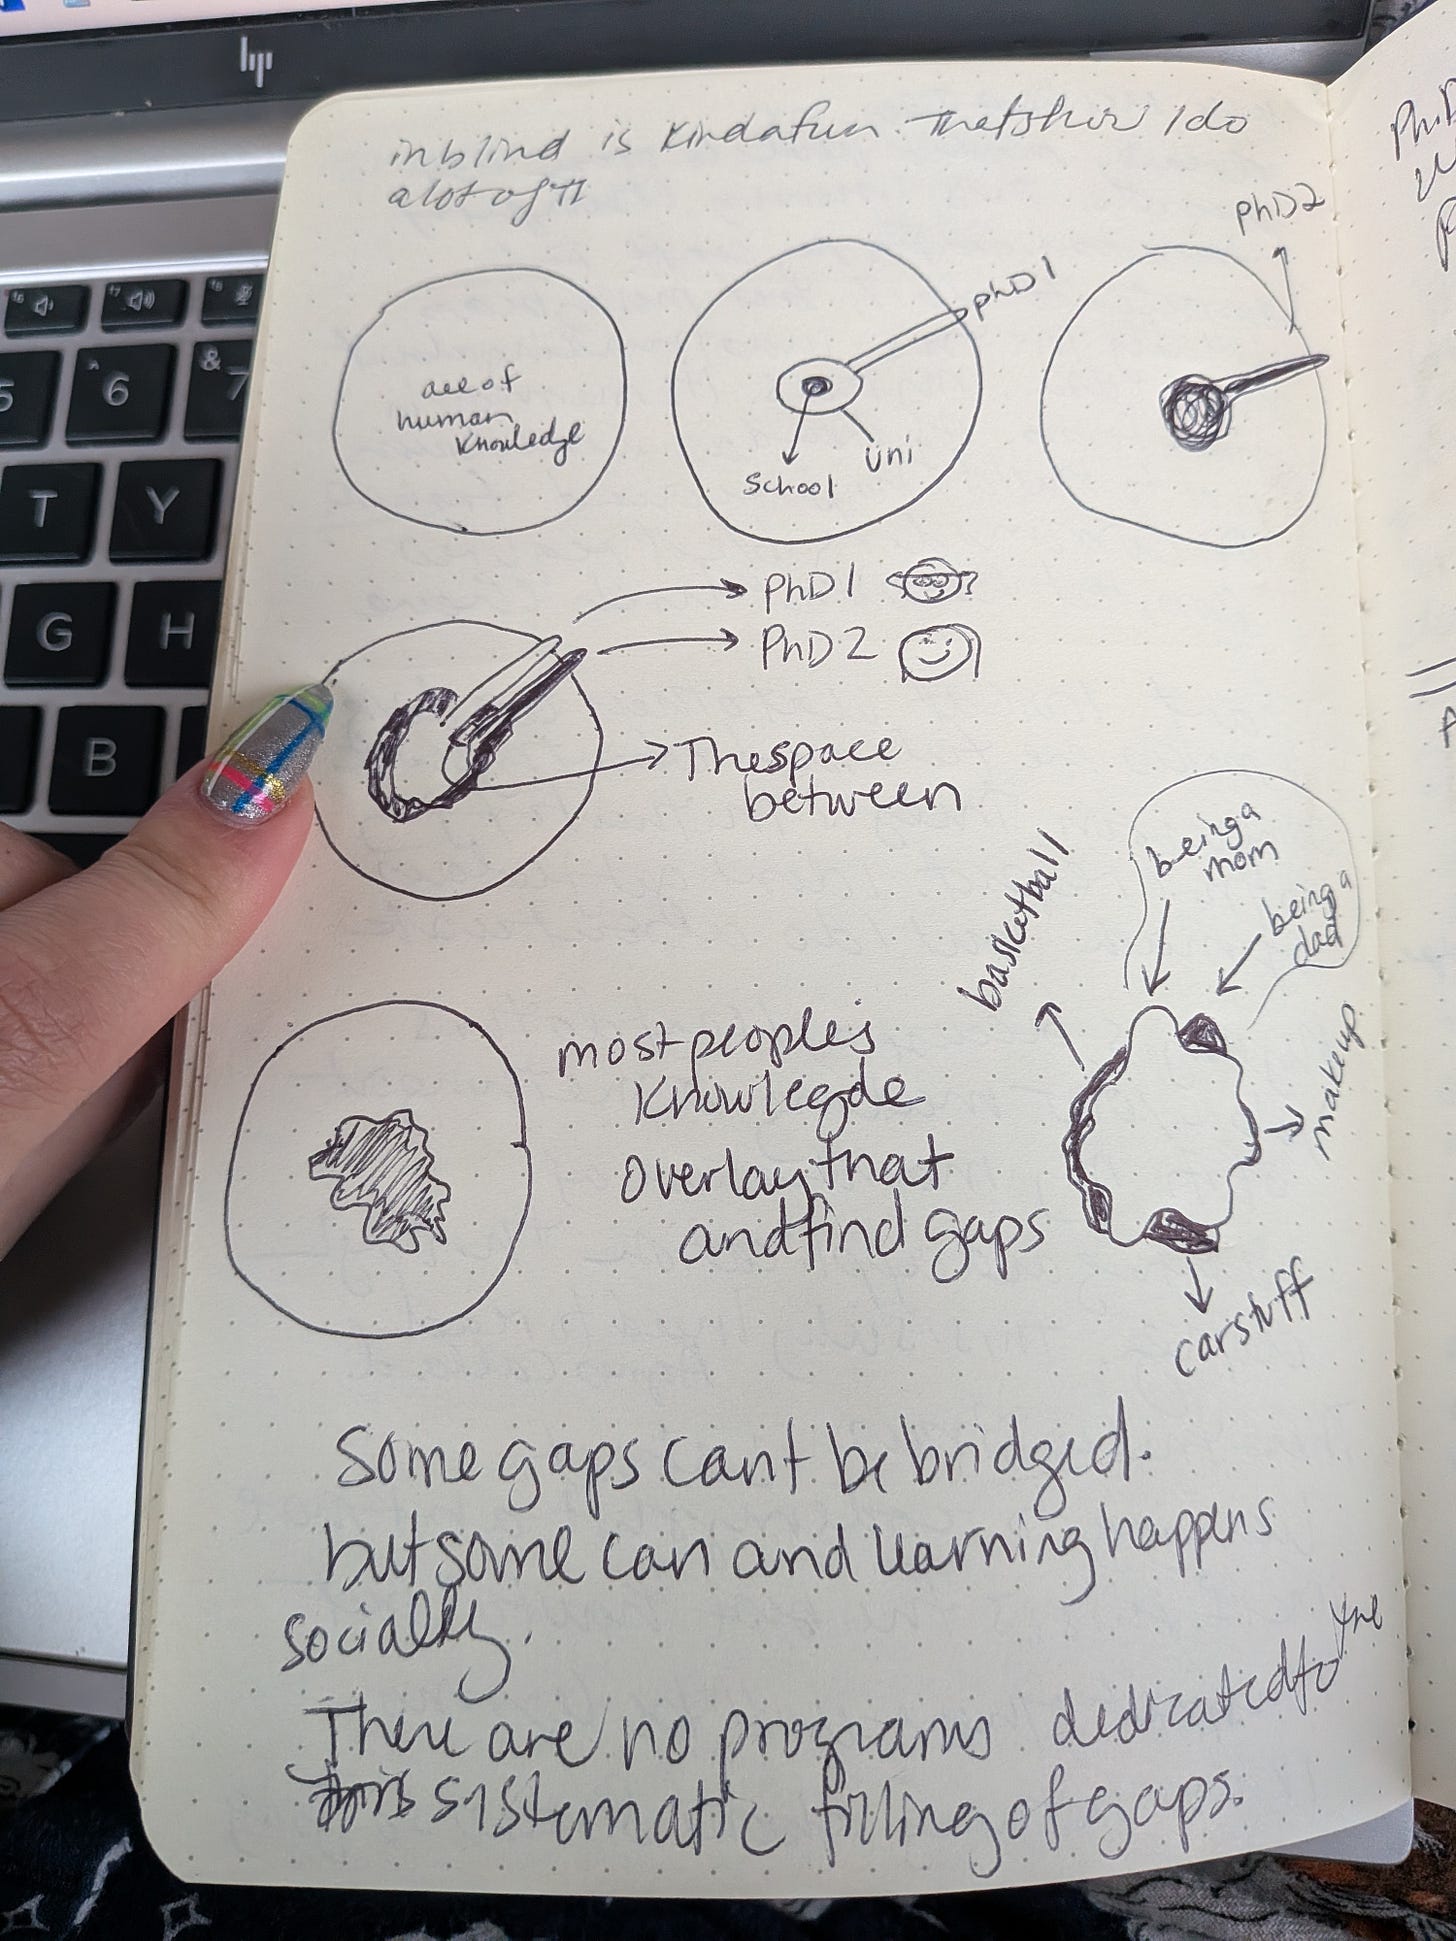 hp
in blind is kindafun. Thatshow I do
a lot of it
PhD2
all of
human
knowledge
phD1
School
Uni
PhD1
PhD2
Thespace
between
being a
mom
being a
dad
basketball
makeup
carstuff
most peoples
Knowlegde
overlay that
and find gaps
Some gaps cant be bridged.
but some can and learning happens
socially.
There are no programs dedicated to the
sistematic filling of gaps.
5
6
7
^
&
T
Y
G
H
B
f6
f7
f8